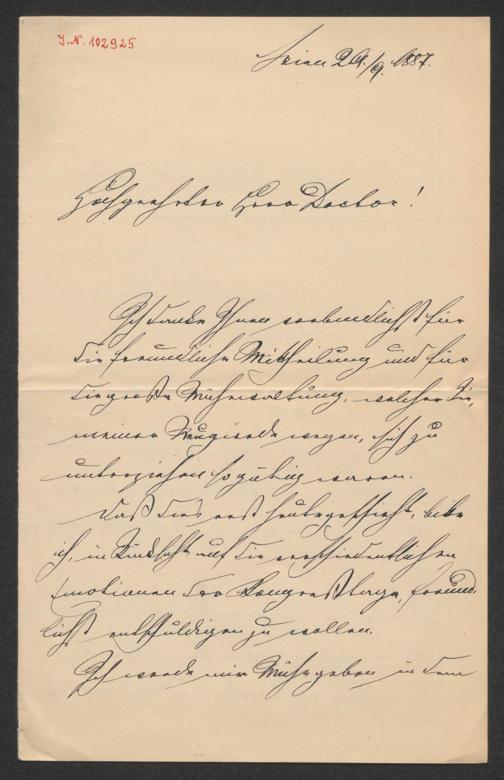 J.N. 102925
Wien 29./9. 1887.
Hochgeehrter Herr Doctor!
Ich danke Ihnen verbindlichst für
die freundliche Mittheilung und für
die große Mühewaltung, welcher Sie,
meiner Neugierde wegen, sich zu
unterziehen so gütig waren.
Daß dies erst heute geschieht, bitte
ich, in Rücksicht auf die verschiedentlichen
Emotionen der Kongreßtage, freund-
lichst entschuldigen zu wollen.
Ich werde mir Mühe geben in dem